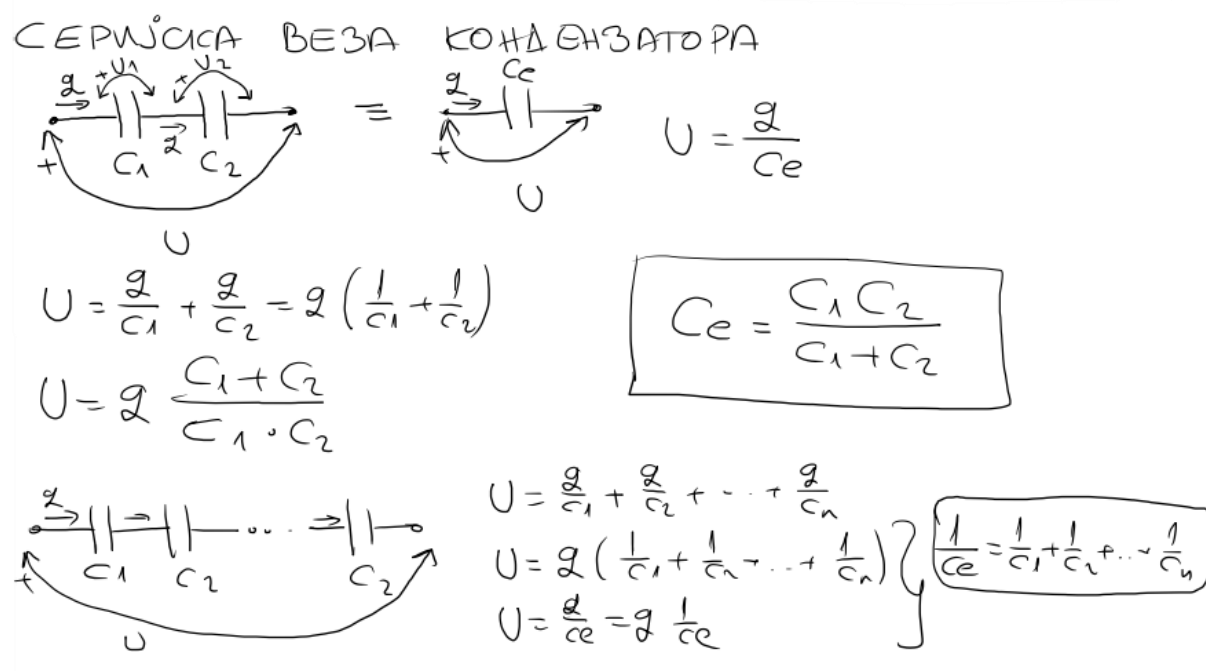 СЕРИЈСКА ВЕЗА КОНДЕНЗАТОРА
q + U1 + U2 ≡ q Ce
C1 q C2
+ U + U
U = q/Ce
U = q/C1 + q/C2 = q (1/C1 + 1/C2)
Ce = C1 C2/(C1 + C2)
U = q (C1 + C2)/(C1 · C2)
q C1 C2 ... C2
+ U
U = q/C1 + q/C2 + ... + q/Cn
U = q (1/C1 + 1/Cn + ... + 1/Cn)
U = q/Ce = q 1/Ce
1/Ce = 1/C1 + 1/C2 + ... + 1/Cn